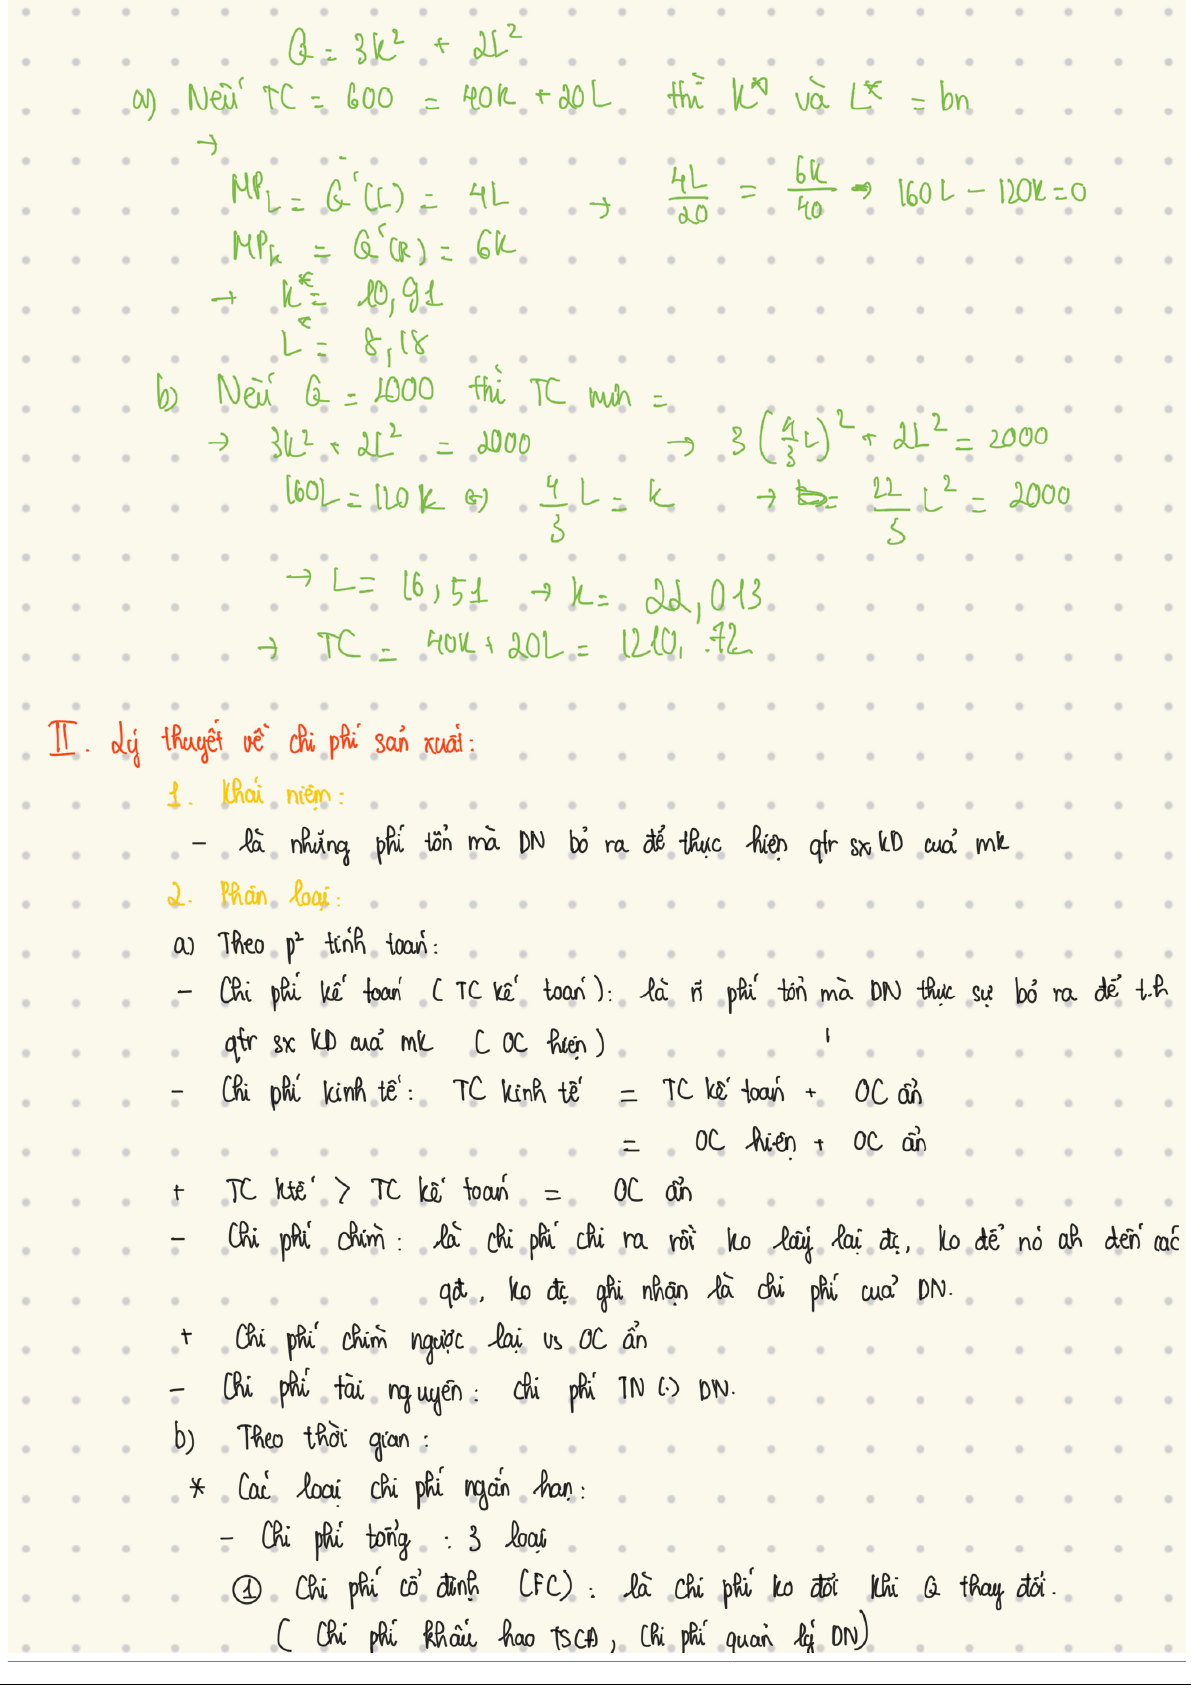 Q = 3K² + 2L²
a) Nếu TC = 600 = 40K + 20L thì K* và L* = bn
→
MP_L = Q'(L) = 4L → 4L/20 = 6K/40 → 160L - 120K = 0
MP_K = Q'(K) = 6K
→ K* = 10,91
L* = 8,18
b) Nếu Q = 2000 thì TC min =
→ 3K² + 2L² = 2000 → 3(4/3 L)² + 2L² = 2000
160L = 120K ⇔ 4/3 L = K → = 22/3 L² = 2000
→ L = 16,51 → K = 22,013
→ TC = 40K + 20L = 1210,72
II. Lý thuyết về chi phí sản xuất:
1. Khái niệm:
- là những phí tổn mà DN bỏ ra để thực hiện qtr sx KD của mk
2. Phân loại:
a) Theo p² tính toán:
- Chi phí kế toán (TC kế toán): là ñ phí tổn mà DN thực sự bỏ ra để t.h
qtr sx KD của mk (OC hiện)
- Chi phí kinh tế: TC kinh tế = TC kế toán + OC ẩn
= OC hiện + OC ẩn
+ TC ktế > TC kế toán = OC ẩn
- Chi phí chìm: là chi phí chi ra rồi ko lấy lại đc, ko để nó ah đến các
qđ, ko đc ghi nhận là chi phí của DN.
+ Chi phí chìm ngược lại vs OC ẩn
- Chi phí tài nguyên: chi phí TN (.) DN.
b) Theo thời gian:
* Các loại chi phí ngắn hạn:
- Chi phí tổng : 3 loại
① Chi phí cố định (FC): là chi phí ko đổi khi Q thay đổi.
(Chi phí khấu hao TSCĐ, chi phí quản lý DN)